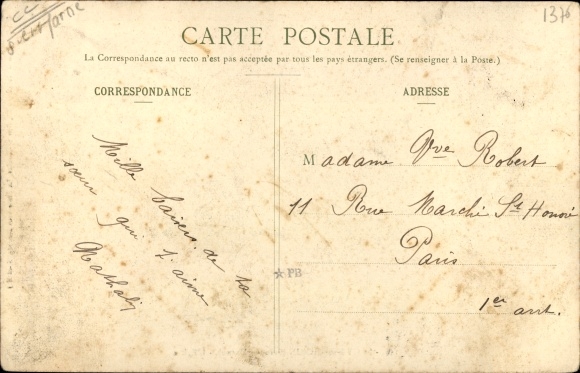 CC
1376
CARTE POSTALE
La Correspondance au recto n'est pas acceptée par tous les pays étrangers. (Se renseigner à la Poste.)
CORRESPONDANCE
Mille baisers de ta
sœur qui t'aime
Nathaly
ADRESSE
Madame Vve Robert
11 Rue Marché St Honoré
Paris
1er arrt.
PB